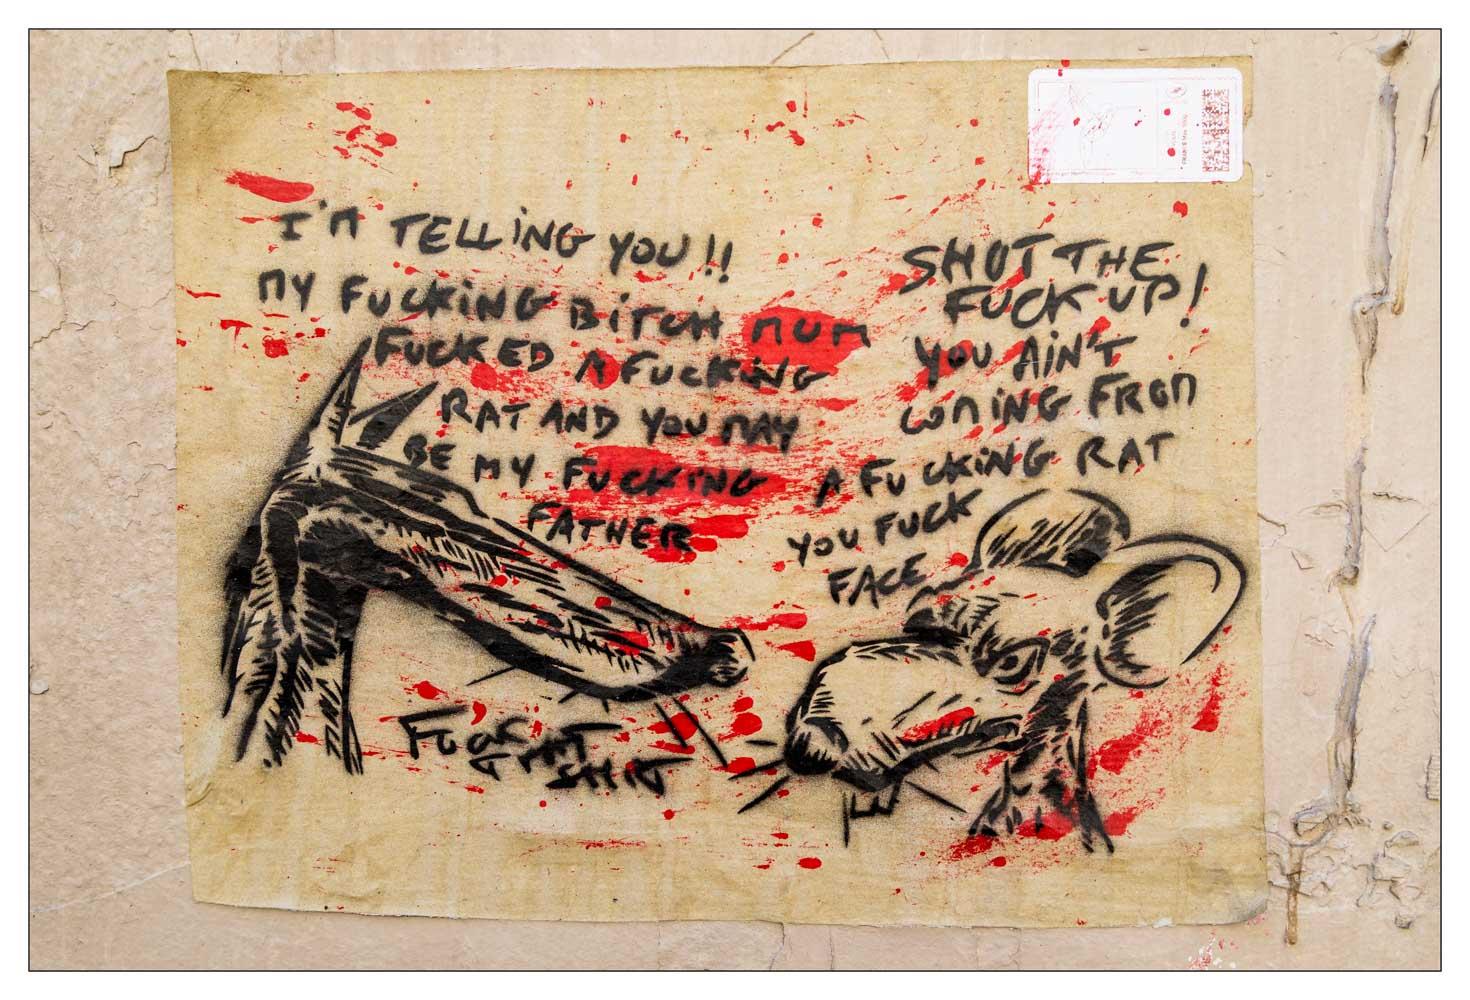 I'M TELLING YOU!!
MY FUCKING BITCH MUM
FUCKED A FUCKING
RAT AND YOU MAY
BE MY FUCKING
FATHER
SHUT THE
FUCK UP!
YOU AIN'T
COMING FROM
A FUCKING RAT
YOU FUCK
FACE
FUCK
SHIT